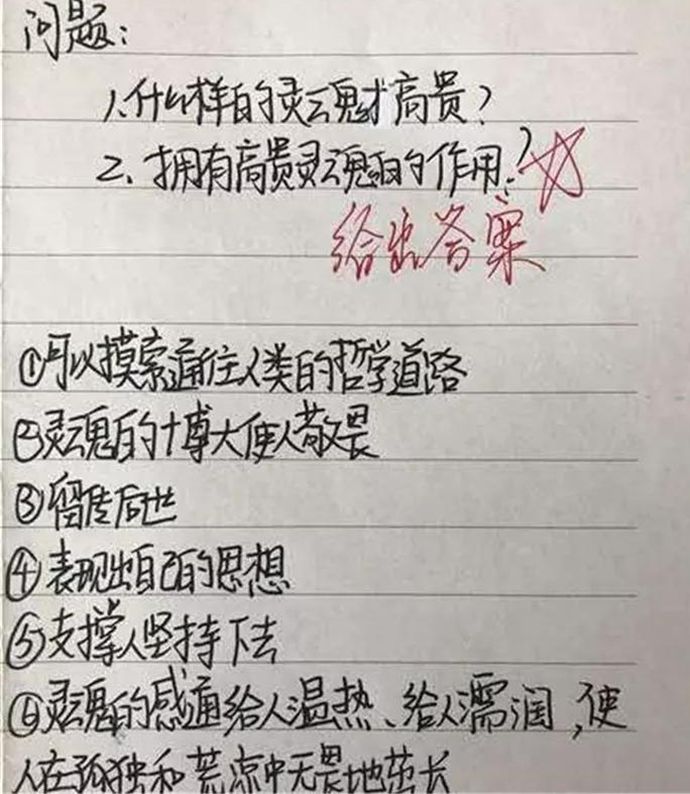 问题:
1.什么样的灵魂才高贵?
2.拥有高贵灵魂的作用?
给出答案
①可以摸索通往人类的哲学道路
②灵魂的博大使人敬畏
③留传后世
④表现出自己的思想
⑤支撑人坚持下去
⑥灵魂的感通给人温热、给人濡润,使
人在孤独和荒凉中无畏地茁长